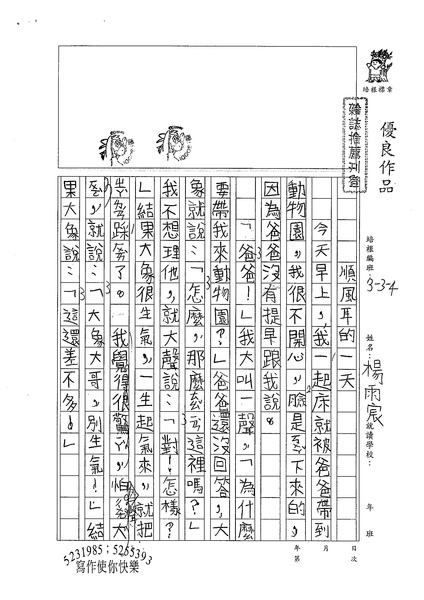 優良作品
培根標章
雜誌推薦刊登
培根編班：3-3-4
姓名：楊雨宸
就讀學校：
年 班
年 月 日
第 次
順風耳的一天
今天早上，我一起床就被爸爸帶到
動物園，我很不開心，臉是ㄠ下來的，
因為爸爸沒有提早跟我說。
「爸爸！」我大叫一聲，「為什麼
要帶我來動物園？」爸爸還沒回答，大
象就說：「怎麼，那麼ㄊ這裡嗎？」
我不想理他，就大聲說：「對！怎樣？
」結果大象很生氣，一生起氣來，就把
ㄌㄢ踩ㄌㄢ了。我覺得很驚ㄧㄚ，怕
ㄠ，就說：「大象大哥，別生氣！」結
果大象說：「這還差不多！」
5231985；5265393
寫作使你快樂